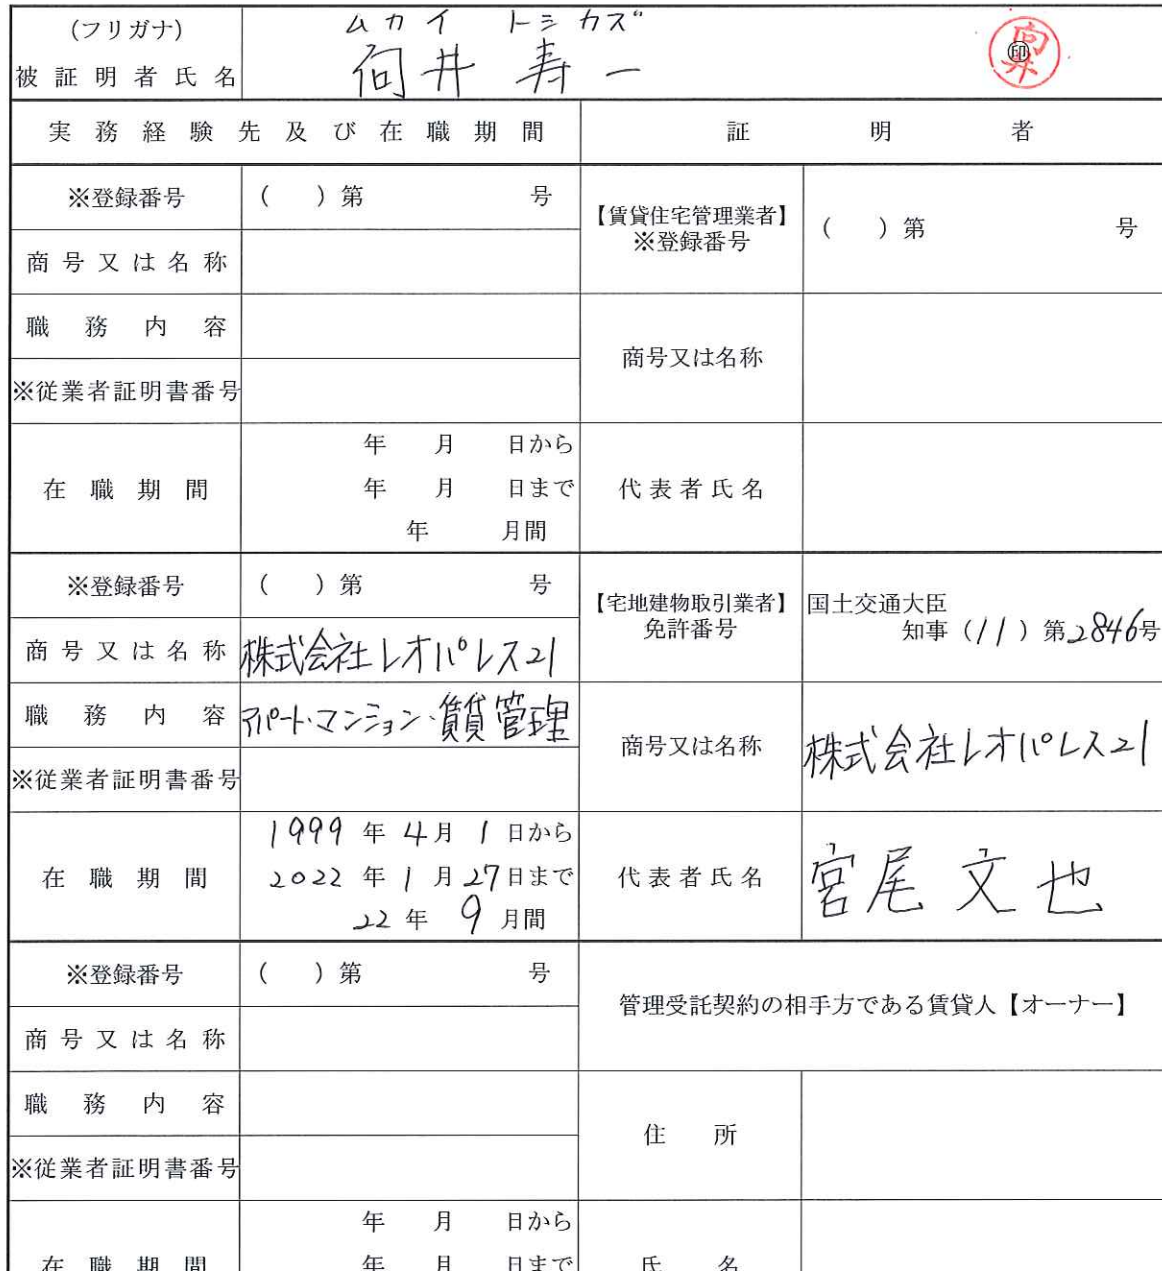 (フリガナ) ムカイ トシカズ
被証明者氏名 向井 寿一 ㊞ 向井
実務経験先及び在職期間 証明者
※登録番号 ( )第 号
商号又は名称
職務内容
※従業者証明書番号
在職期間 年 月 日から
年 月 日まで
年 月間
【賃貸住宅管理業者】
※登録番号 ( )第 号
商号又は名称
代表者氏名
※登録番号 ( )第 号
商号又は名称 株式会社レオパレス21
職務内容 アパート・マンション・賃貸管理
※従業者証明書番号
在職期間 1999年4月1日から
2022年1月27日まで
22年9月間
【宅地建物取引業者】 国土交通大臣
免許番号 知事(11)第2846号
商号又は名称 株式会社レオパレス21
代表者氏名 宮尾文也
※登録番号 ( )第 号
商号又は名称
職務内容
※従業者証明書番号
在職期間 年 月 日から
年 月 日まで
管理受託契約の相手方である賃貸人【オーナー】
住所
氏名